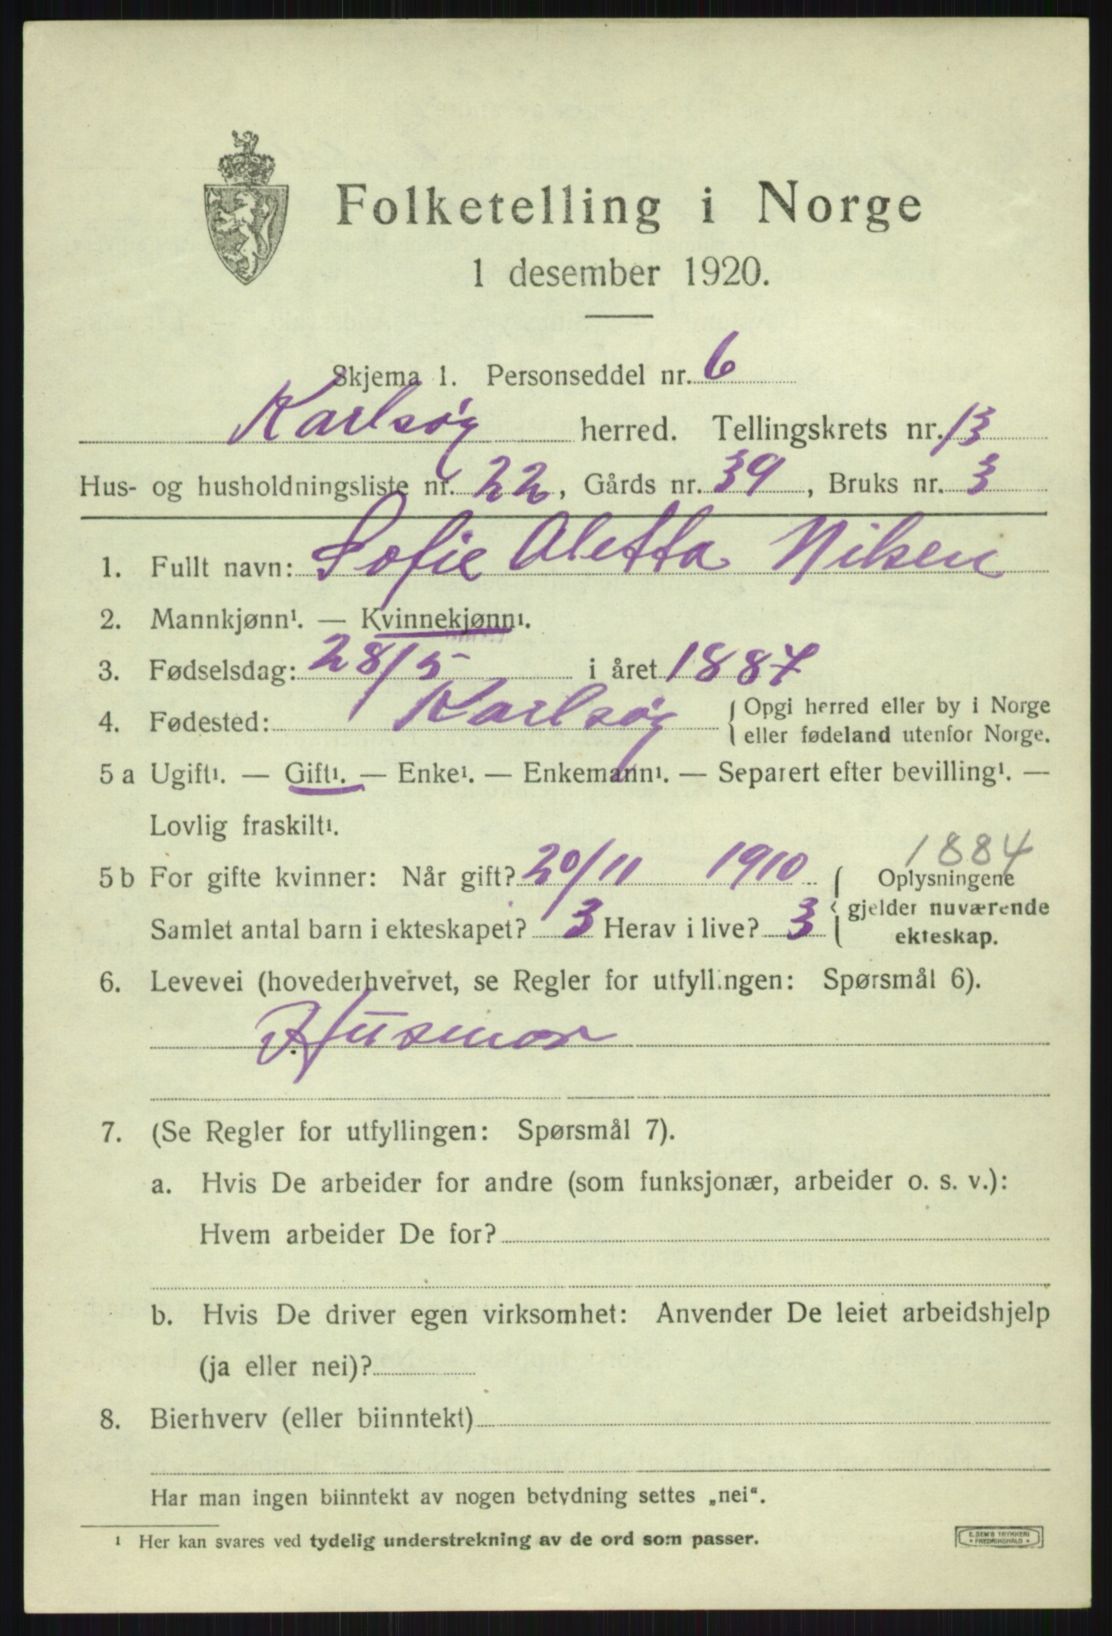 Folketelling i Norge
1 desember 1920.
Skjema 1. Personseddel nr. 6
Karlsøy herred. Tellingskrets nr. 13
Hus- og husholdningsliste nr. 22, Gårds nr. 39, Bruks nr. 3
1. Fullt navn: Sofie Aletta Nilsen
2. Mannkjønn¹. — Kvinnekjønn¹.
3. Fødselsdag: 28/5 i året 1887
4. Fødested: Karlsøy { Opgi herred eller by i Norge
eller fødeland utenfor Norge.
5 a Ugift¹. — Gift¹. — Enke¹. — Enkemann¹. — Separert efter bevilling¹. —
Lovlig fraskilt¹.
1884
5 b For gifte kvinner: Når gift? 20/11 1910 { Oplysningene
gjelder nuværende
Samlet antal barn i ekteskapet? 3 Herav i live? 3 ekteskap.
6. Levevei (hovederhvervet, se Regler for utfyllingen: Spørsmål 6).
Husmor
7. (Se Regler for utfyllingen: Spørsmål 7).
a. Hvis De arbeider for andre (som funksjonær, arbeider o. s. v.):
Hvem arbeider De for?
b. Hvis De driver egen virksomhet: Anvender De leiet arbeidshjelp
(ja eller nei)?
8. Bierhverv (eller biinntekt)
Har man ingen biinntekt av nogen betydning settes „nei“.
¹ Her kan svares ved tydelig understrekning av de ord som passer.
E. SEM'S TRYKKERI
FREDRIKSHALD